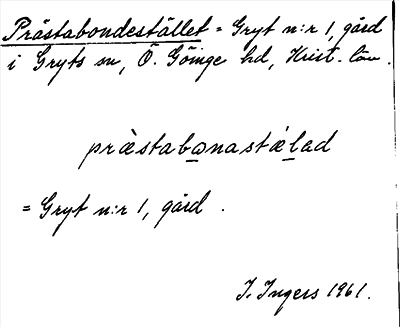 Prästabondestället = Gryt n:r 1, gård
i Gryts sn, Ö. Göinge hd, Krist. län.
præ̀stabɷnastɛ́lad
= Gryt n:r 1, gård.
I. Ingers 1961.